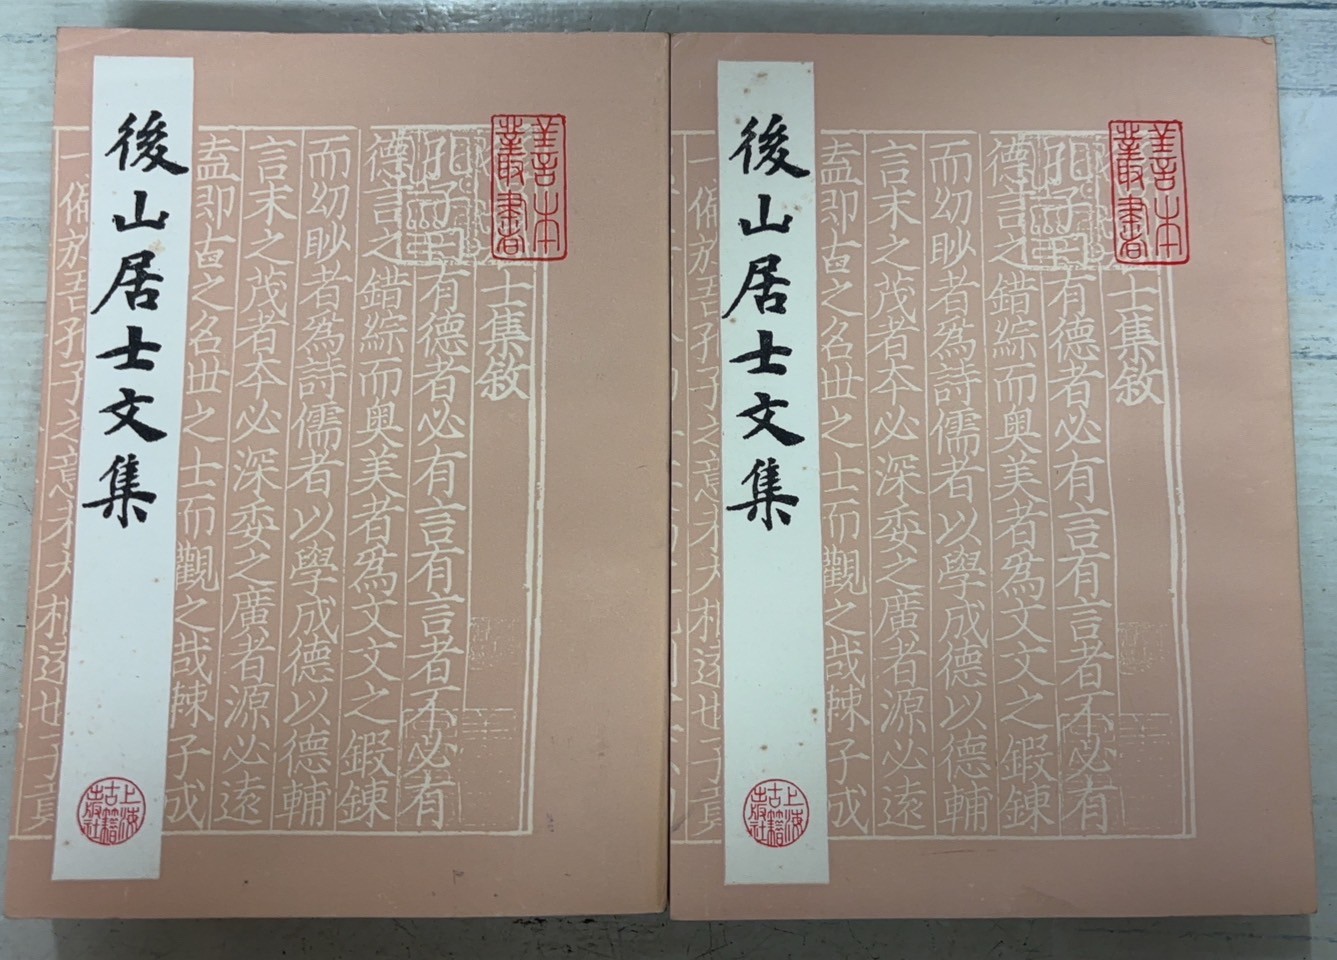 後山居士文集
善本
叢書
士集敘
孔子曰有德者必有言有言者不必有
德言之錯綜而奥美者爲文文之鍜鍊
而幼眇者爲詩儒者以學成德以德輔
言末之茂者夲必深委之廣者源必遠
盍即古之名世之士而觀之哉棘子成
上海
古籍
出版社
後山居士文集
善本
叢書
士集敘
孔子曰有德者必有言有言者不必有
德言之錯綜而奥美者爲文文之鍜鍊
而幼眇者爲詩儒者以學成德以德輔
言末之茂者夲必深委之廣者源必遠
盍即古之名世之士而觀之哉棘子成
上海
古籍
出版社